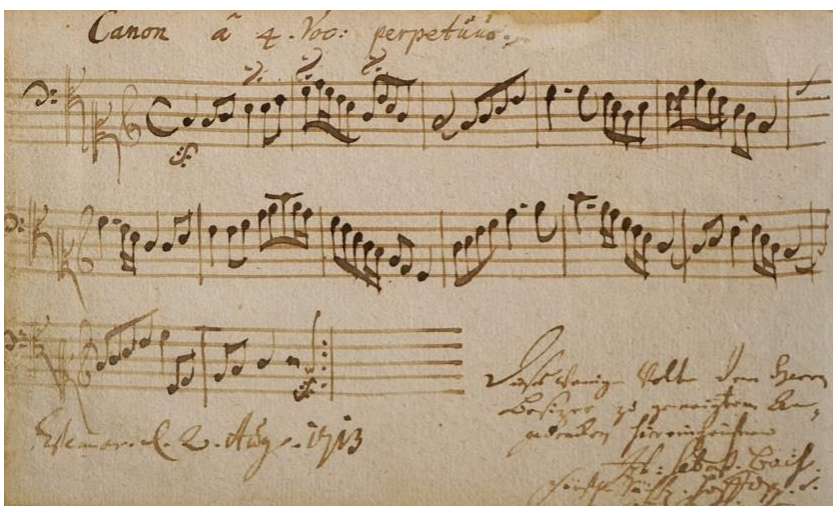 Canon à 4. Voc: perpetuus.
Weimar. d. 2. Aug. 1713
Dieses Wenige wolte dem Herrn
Besitzer zu geneigtem An-
gedencken hier einzeichnen
Joh: Sebast. Bach.
Fürstl. Sächs. HoffOrg. v.